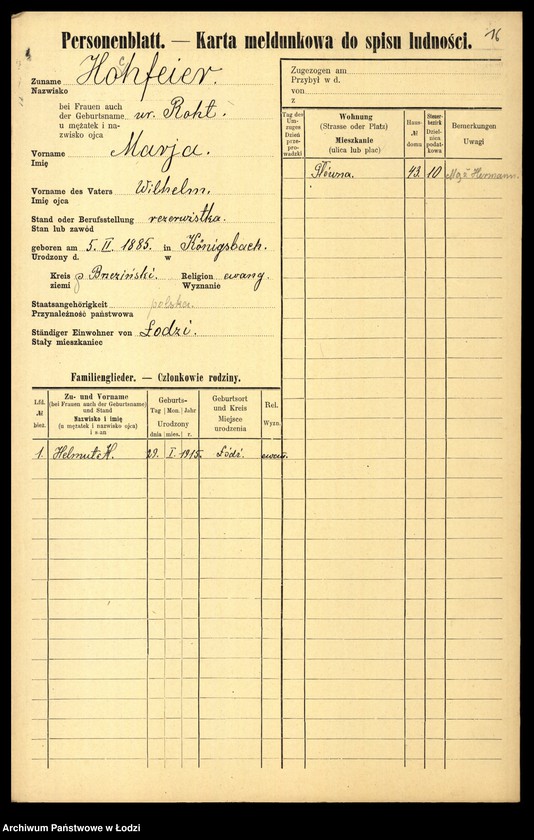 16
Personenblatt. — Karta meldunkowa do spisu ludności.
Zuname
Nazwisko
Hohfeier.
bei Frauen auch
der Geburtsname
u mężatek i na-
zwisko ojca
ur. Roht.
Vorname
Imię
Marja.
Vorname des Vaters
Imię ojca
Wilhelm.
Stand oder Berufsstellung
Stan lub zawód
rezerwistka.
geboren am 5. II. 1885. in Königsbach.
Urodzony d. w
Kreis
ziemi
p Brzeziński.
Religion
Wyznanie
ewang.
Staatsangehörigkeit
Przynależność państwowa
polska.
Ständiger Einwohner von
Stały mieszkaniec
Łodzi.
Zugezogen am
Przybył w d.
von
z
Tag des Um-
zuges
Dzień
prze-
prowadzki
Wohnung
(Strasse oder Platz)
Mieszkanie
(ulica lub plac)
Haus-
№
domu
Steuer-
bezirk
Dziel-
nica
podat-
kowa
Bemerkungen
Uwagi
Główna. 43. 10. Mąż Hermann.
Familienglieder. — Członkowie rodziny.
Lfd.
№
bież.
Zu- und Vorname
(bei Frauen auch der Geburtsname)
und Stand
Nazwisko i imię
(u mężatek i nazwisko ojca)
i stan
Geburts-
Tag Mon. Jahr
Urodzony
dnia mies. r.
Geburtsort
und Kreis
Miejsce
urodzenia
Rel.
Wyzn.
1. Helmut H. 29. I. 1915. Łódź. ewan.
Archiwum Państwowe w Łodzi